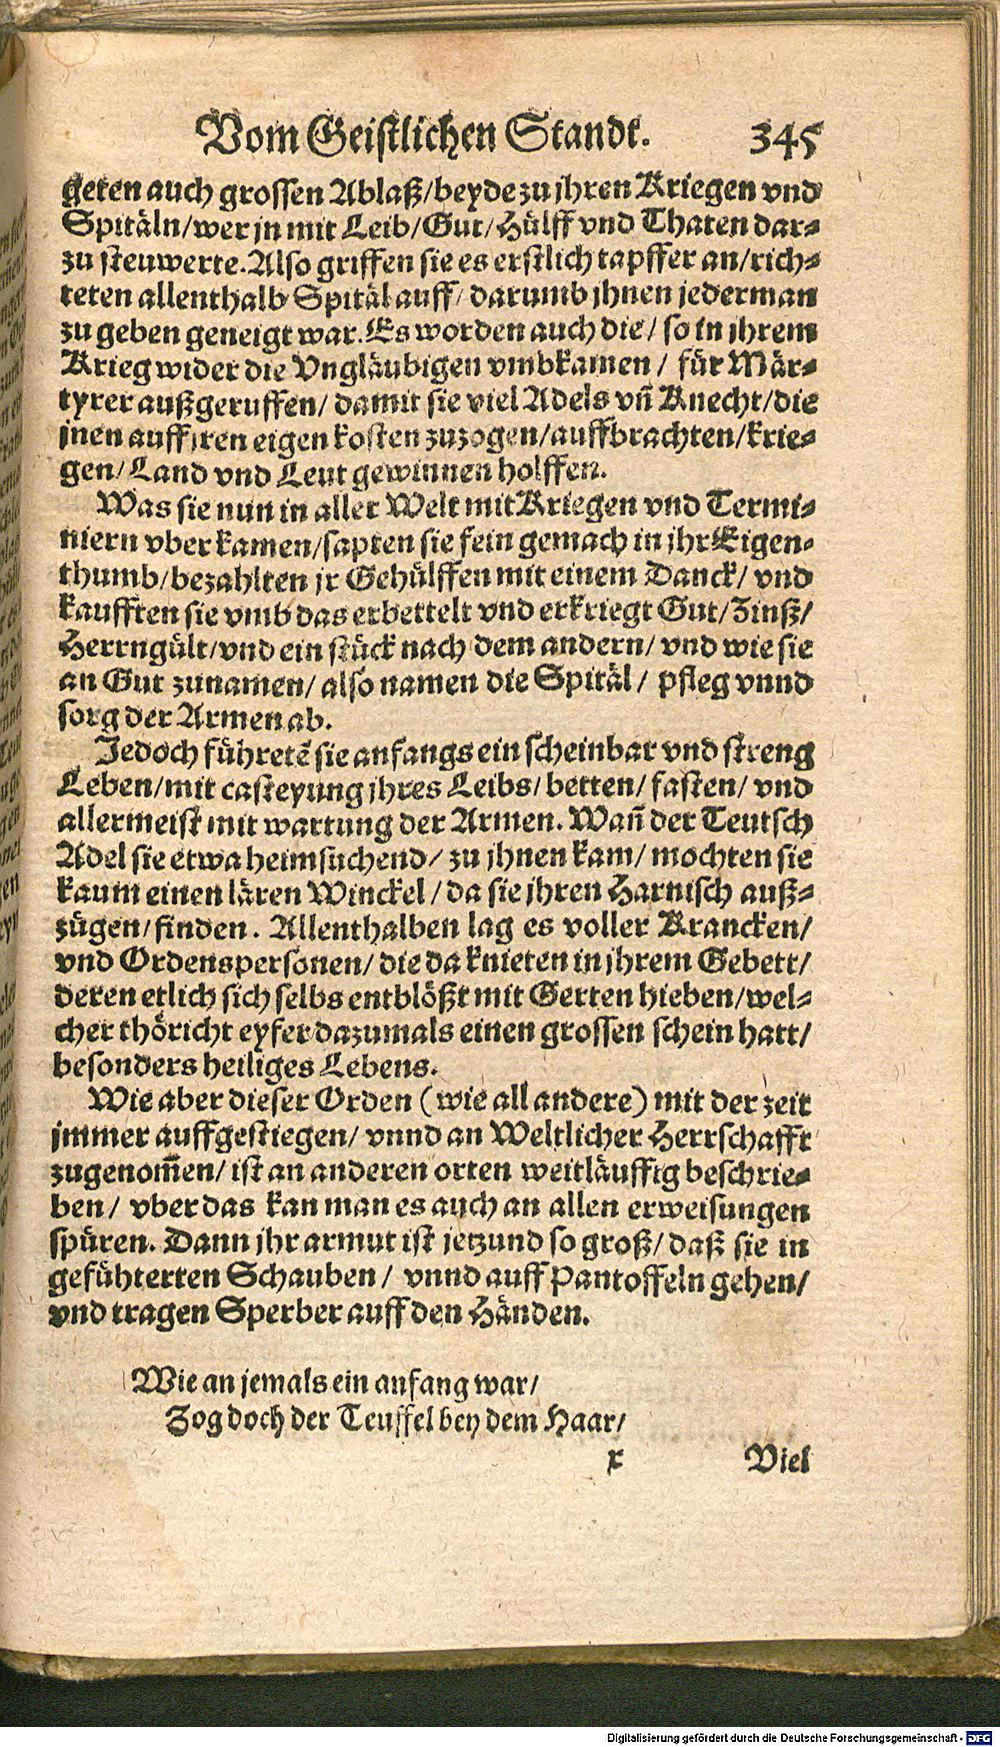 Vom Geistlichen Standt. 345
geten auch grossen Ablaß/beyde zu jhren Kriegen vnd
Spitäln/wer jn mit Leib/Gut/Hülff vnd Thaten dar-
zu steuwerte. Also griffen sie es erstlich tapffer an/rich-
teten allenthalb Spitäl auff/ darumb jhnen jederman
zu geben geneigt war. Es worden auch die/ so in jhrem
Krieg wider die Vngläubigen vmbkamen/ für Mär-
tyrer außgeruffen/ damit sie viel Adels vñ Knecht/die
jnen auff jren eigen kosten zuzogen/auffbrachten/krie-
gen/Land vnd Leut gewinnen holffen.
Was sie nun in aller Welt mit Kriegen vnd Termi-
niern vberkamen/sapten sie fein gemach in jhr Eigen-
thumb/bezahlten jr Gehülffen mit einem Danck/ vnd
kaufften sie vmb das erbettelt vnd erkriegt Gut/Zinß/
Herrngült/vnd ein stück nach dem andern/ vnd wie sie
an Gut zunamen/ also namen die Spitäl/ pfleg vnnd
sorg der Armen ab.
Jedoch führetẽ sie anfangs ein scheinbar vnd streng
Leben/mit casteyung jhres Leibs/ betten/ fasten/ vnd
allermeist mit wartung der Armen. Wañ der Teutsch
Adel sie etwa heimsuchend/ zu jhnen kam/ mochten sie
kaum einen lären Winckel/ da sie jhren Harnisch auß-
zügen/finden. Allenthalben lag es voller Krancken/
vnd Ordenspersonen/ die da knieten in jhrem Gebett/
deren etlich sich selbs entblößt mit Gerten hieben/wel-
cher thöricht eyfer dazumals einen grossen schein hatt/
besonders heiliges Lebens.
Wie aber dieser Orden (wie all andere) mit der zeit
jmmer auffgestiegen/ vnnd an Weltlicher Herrschafft
zugenom̃en/ ist an anderen orten weitläufftig beschrie-
ben/ vber das kan man es auch an allen erweisungen
spüren. Dann jhr armut ist jetzund so groß/daß sie in
gefühterten Schauben/ vnnd auff Pantoffeln gehen/
vnd tragen Sperber auff den Händen.
Wie an jemals ein anfang war/
Zog doch der Teuffel bey dem Haar/
x Viel
Digitalisierung gefördert durch die Deutsche Forschungsgemeinschaft - DFG